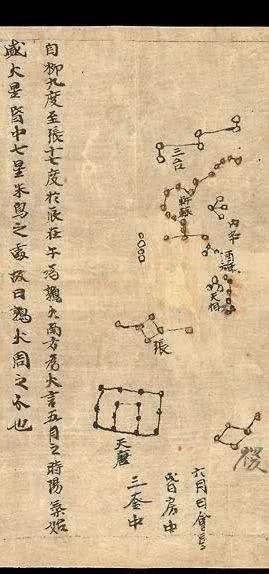 三台
軒轅
內平
酒旗
天相
張
天廟
稷
六月日會
房中
奎中
自柳九度至張十七度於辰在午為鶉火南方為火言五月之時陽氣始
盛火星昏中七星朱鳥之處故曰鶉火周之分也